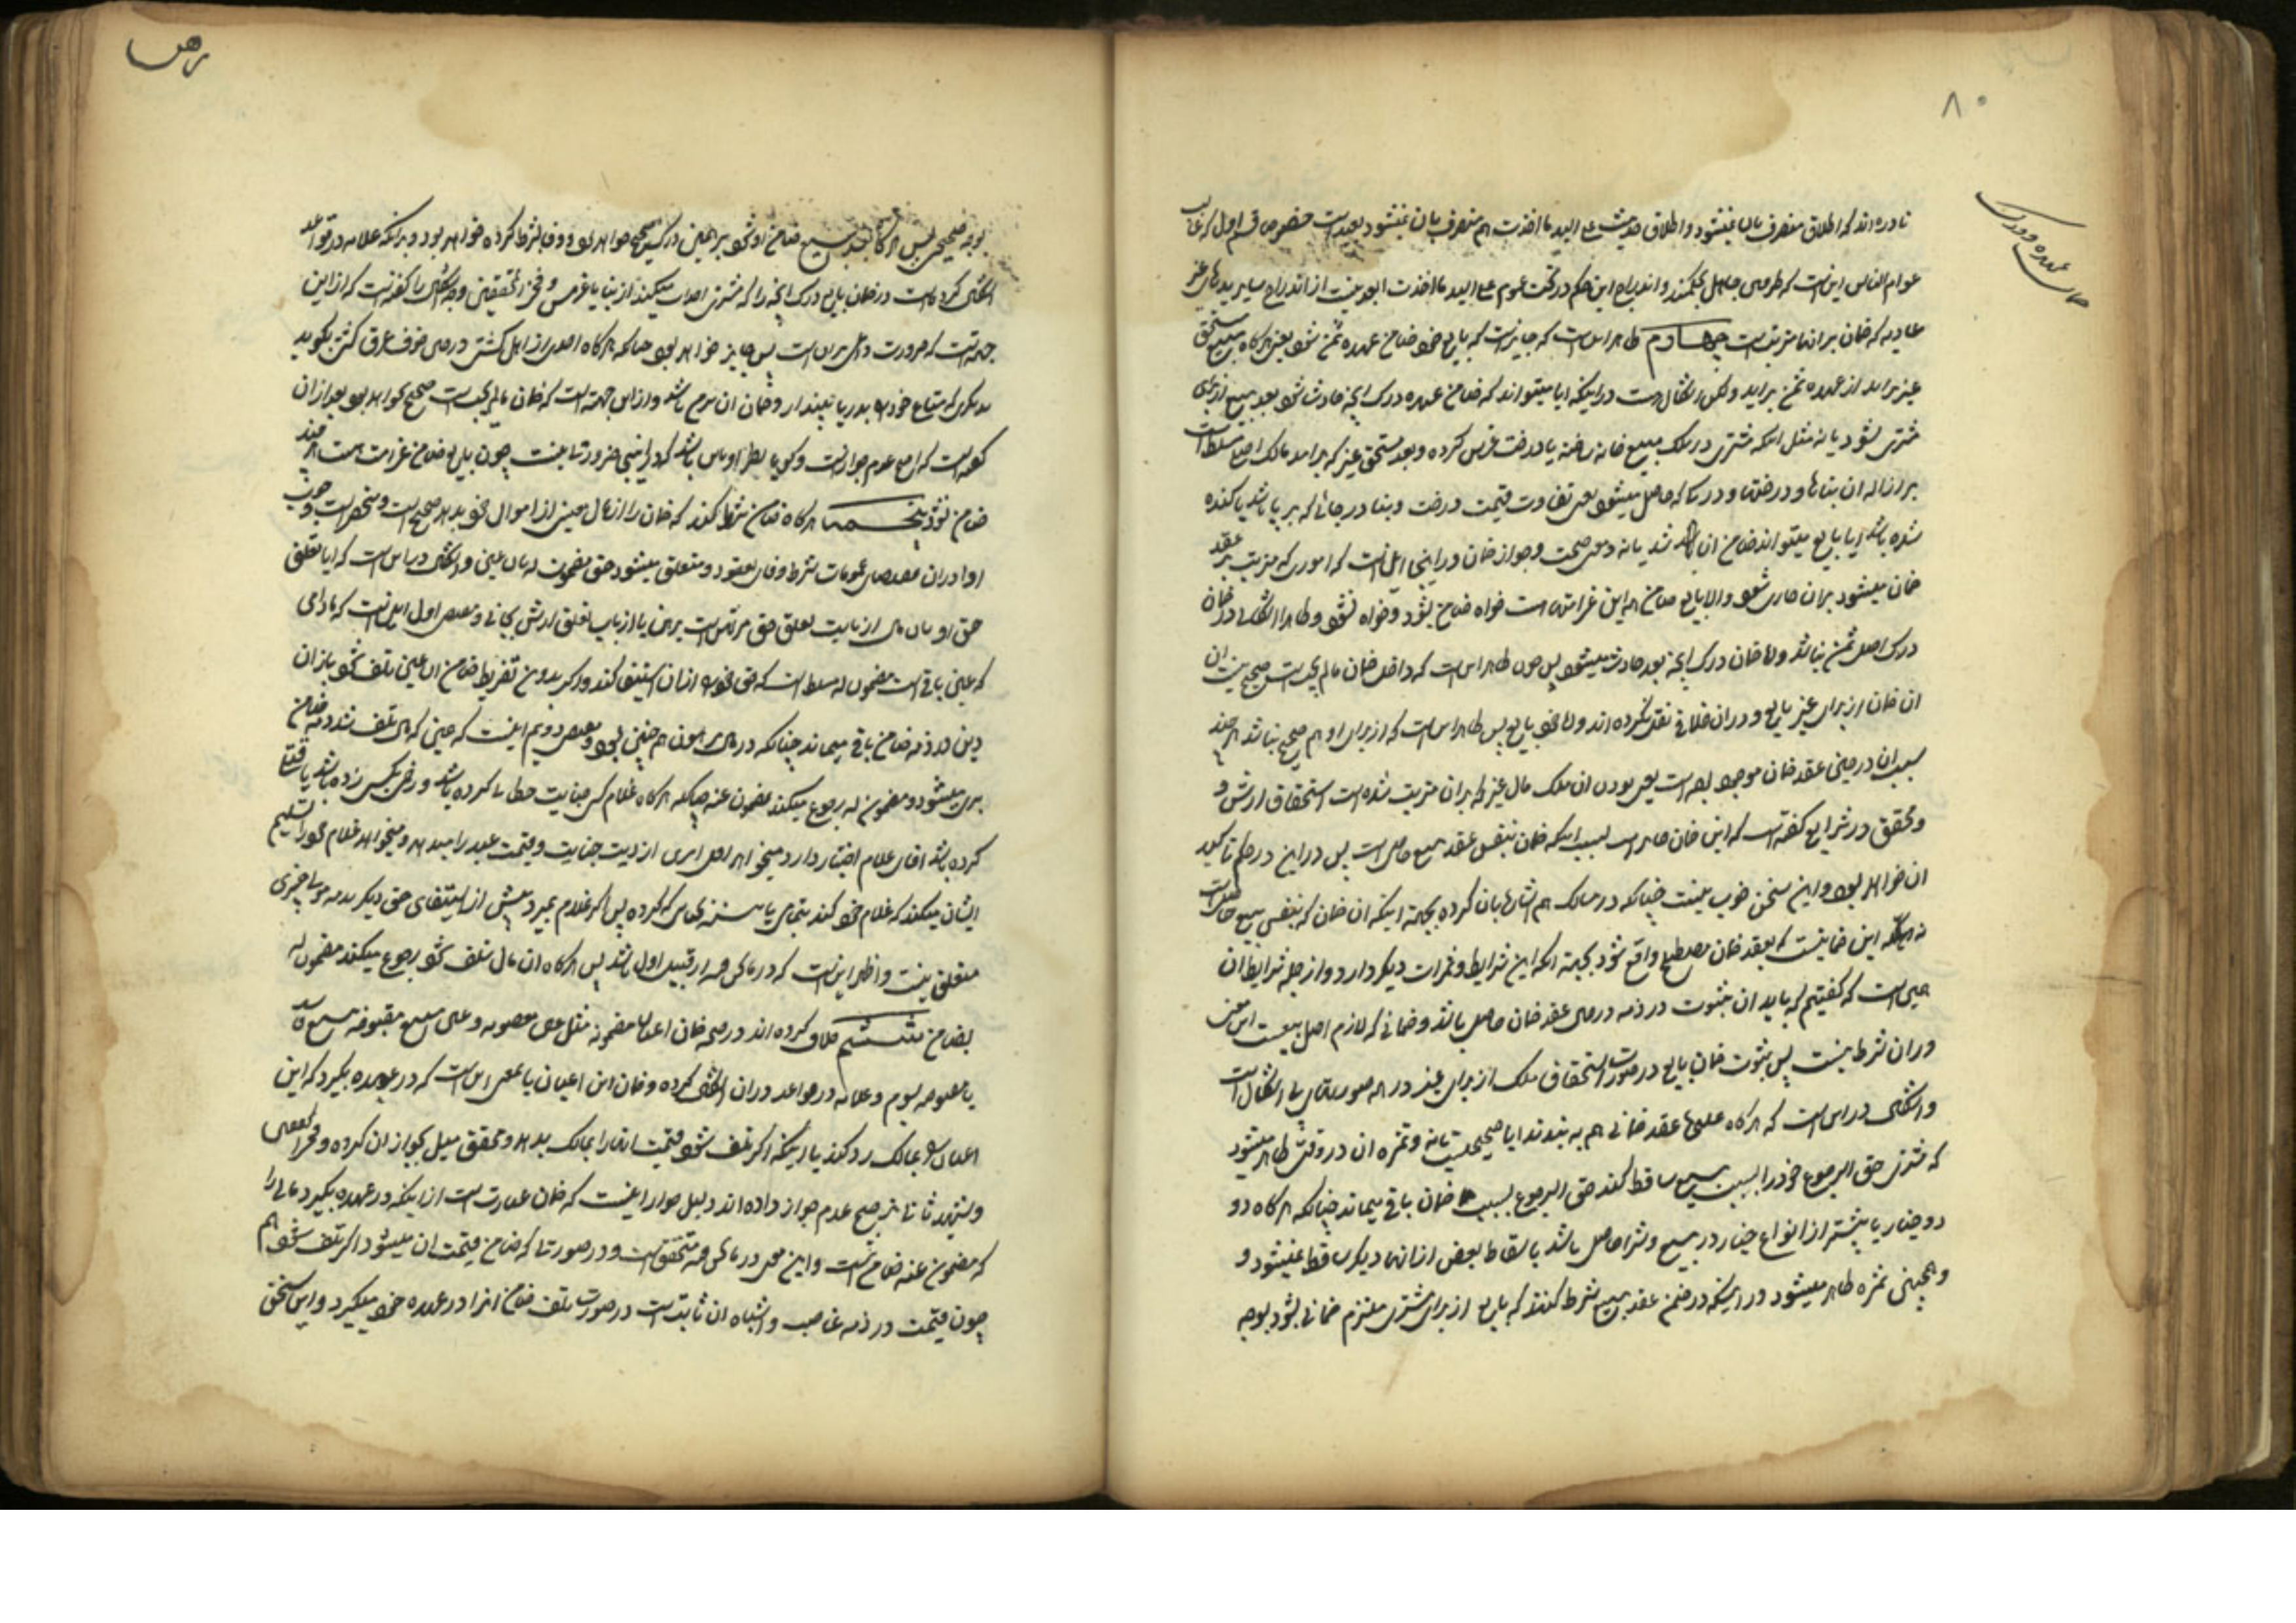 ۸۰
ضمان عهده و درک
نادره اند که اطلاق منصرف بان نمیشود و اطلاق حدیث علی الید ما اخذت هم منصرف بان نمیشود بعید است خصوصا قسم اول که غالب
عوام الناس اینست که طرفین جاهل بحکمند و اندراج این حکم در تحت عموم علی الید ما اخذت ابعد نیست از اندراج سایر یدهای غیر
عادیه که ضمان بر انها مترتبست چهارم ظاهر اینست که جایز است که بایع خود ضامن عهده ثمن شود یعنی هرگاه مبیع مستحق
غیر براید از عهده ثمن براید ولکن اشکال است در اینکه ایا میتواند که ضامن عهده درک انچه حادث شود بعد بیع از برای
مشتری بشود یا نه مثل اینکه مشتری در ملک مبیع خانه ساخته یا درخت غرس کرده و بعد مستحق غیر که براید مالک اصلی مسلط است
بر ازاله ان بناها و درختها و درکی که حاصل میشود یعنی تفاوت قیمت درخت و بنا در حالی که بر پا باشد یا کنده
شده باشد ایا بایع میتواند ضامن ان شد یا نه معنی صحت و جواز ضمان در اینجا اینست که اموری که مترتب بر عقد
ضمان میشود بر ان جاری شود والا بایع ضامن این غرامتها است خواه ضامن بشود و خواه نشود و ظاهرا اشکالی در ضمان
درک اصل ثمن نباشد و اما ضمان درک انچه بعد حادث میشود پس چون ظاهر اینست که داخل ضمان ما لم یجب است صحیح نیست ان
ان ضمان از برای غیر بایع و در ان خلافی نقل نکرده اند و اما خود بایع پس ظاهر اینست که از برای او هم صحیح نباشد هر چند
سبب ان در حین عقد ضمان موجود بوده است یعنی بودن ان ملک مال غیر که بر ان مترتب شده است استحقاق ارش و
و محقق در شرایع گفته است که این ضمان جایز است بسبب اینکه ضمان بنفس عقد بیع حاصل است پس در این در حکم تاکید
ان خواهد بود و این سخن خوب نیست چنانکه در مسالک هم اشاره بان کرده بجهة اینکه ان ضمان که بنفس بیع حاصل است
نه اینکه این ضمانیست که بعقد ضمان مصطلح واقع شود بجهة انکه این شرایط و ثمرات دیگر دارد و از جمله شرایط ان
همین است که گفتیم که باید ان بثبوت در ذمه در حین عقد ضمان حاصل باشد و ضمانی که لازم اصل بیعست این معنی
در ان شرط نیست پس ثبوت ضمان بایع در صورت استحقاق ملک از برای غیر در همه صورتهای بی اشکال است
و اشکال در این است که هرگاه علیحده عقد ضمانی هم به بندند ایا صحیحست یا نه و ثمره ان در وقتی ظاهر میشود
که مشتری حق الرجوع خود را بسبب بیع ساقط کند حق الرجوع بسبب ضمان باقی بماند چنانکه هرگاه دو
دو خیار یا بیشتر از انواع خیار در بیع و شرا حاصل باشد باسقاط بعض از انها دیگر ساقط نمیشود و
و همچنین ثمره ظاهر میشود در اینکه در ضمن عقد بیع شرط کنند که بایع از برای مشتری ملتزم ضمانی بشود بوجه
رهن
بوجه صحیحی پس هرگاه بعد بیع ضامن او شود بر همین درک صحیح خواهد بود و وفا بشرط کرده خواهد بود و بدانکه علامه در قواعد
اشکال کرده است در ضمان بایع درک انچه را که مشتری احداث میکند از بنا یا غرس و فخر المحققین وجه اشکال را گفته است که از این
جهة است که ضرورت داعی بر ان است پس جایز خواهد بود چنانکه هرگاه احدی از اهل کشتی در حین خوف غرق کشتی بگوید
بدیگری که متاع خود را بدریا بینداز و ضمان ان بر من باشد و از این جهت است که ضمان ما لم یجب است صحیح نخواهد بود بعد از ان
گفته است که اصح عدم جواز است و گویا نظر او باین باشد که در اینجا ضرورتی نیست چون بایع ضامن غرامت هست هر چند
ضامن نشود پنجم هرگاه ضامن شرط کند که ضمان را از مال معین از اموال خود بدهد صحیح است و منحصر است وجوب
ادا در ان بمقتضای عمومات شرط و وفای بعقود و متعلق میشود حق مضمون له بان عین و اشکال در این است که ایا تعلق
حق او بان مال از بابت تعلق حق مرتهن است برهن یا از باب تعلق ارش بجانی و مقتضی اول اینست که مادامی
که عین باقی است مضمون له مسلط است که حق خود را از ان استیفا کند و اگر بدون تفریط ضامن ان عین تلف شود باز ان
دین در ذمه ضامن باقی میماند چنانکه در مال مرهون هم چنین بود و مقتضی دویم اینست که عینی که مال تلف شد ذمه ضامن
بری میشود و مضمون له رجوع میکند بمضمون عنه چنانکه هرگاه غلام کسی جنایت خطا کرده باشد و زخمی بکسی زده باشد یا قتل
کرده باشد اقای غلام اختیار دارد میخواهد اقل امرین از دیت جنایت و قیمت عبد را میدهد و میخواهد غلام خود را تسلیم
ایشان میکند که غلام خود کنند بجای که کرده پس اگر غلام بمیرد پیش از استیفای حق دیگر بذمه مولی چیزی
متعلق نیست و اظهر اینست که در ما نحن فیه از قبیل اول باشد پس هرگاه ان مال تلف شود رجوع میکند مضمون له
بضامن ششم خلاف کرده اند در صحه ضمان اعیان مضمونه مثل عین مغصوبه و عین مبیع مقبوضه ببیع فاسد
یا مقبوضه بسوم و علامه در قواعد در ان اشکال کرده و ضمان این اعیان یا بمعنی این است که در عهده بگیرد که این
اعیان را بمالک رد کند یا اینکه اگر تلف شود قیمت انها را بمالک بدهد و محقق میل بجواز ان کرده و فخر المحققین
و شهید ثانی ترجیح عدم جواز داده اند و دلیل جواز اینست که ضمان عبارت است از اینکه در عهده بگیرد مالی را
که مضمون عنه ضامن انست و این معنی در ما نحن فیه متحقق است و در صورتی که ضامن قیمت ان میشود اگر تلف شود هم
چون قیمت در ذمه غاصب و اشباه ان ثابت است در صورت تلف ضامن انرا در عهده خود میگیرد و این سخن